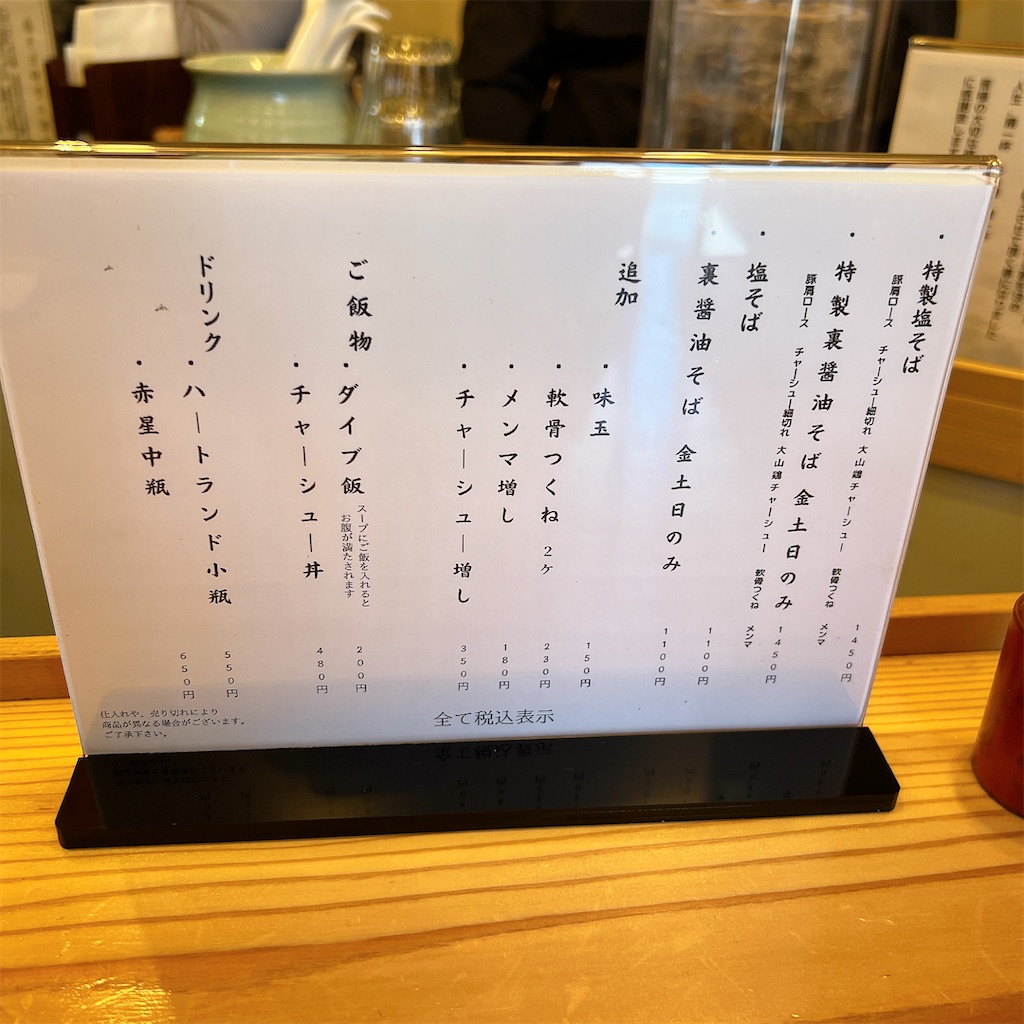 ・特製塩そば
豚肩ロース チャーシュー細切れ 大山鶏チャーシュー 軟骨つくね メンマ
1450円
・特製裏醤油そば 金土日のみ
豚肩ロース チャーシュー細切れ 大山鶏チャーシュー 軟骨つくね メンマ
1450円
・塩そば
1100円
・裏醤油そば 金土日のみ
1100円
追加
・味玉
150円
・軟骨つくね 2ケ
230円
・メンマ増し
180円
・チャーシュー増し
350円
ご飯物
・ダイブ飯
スープにご飯を入れると
お腹が満たされます
200円
・チャーシュー丼
480円
ドリンク
・ハートランド小瓶
550円
・赤星中瓶
650円
仕入れや、売り切れにより
商品が異なる場合がございます。
ご了承下さい。
全て税込表示